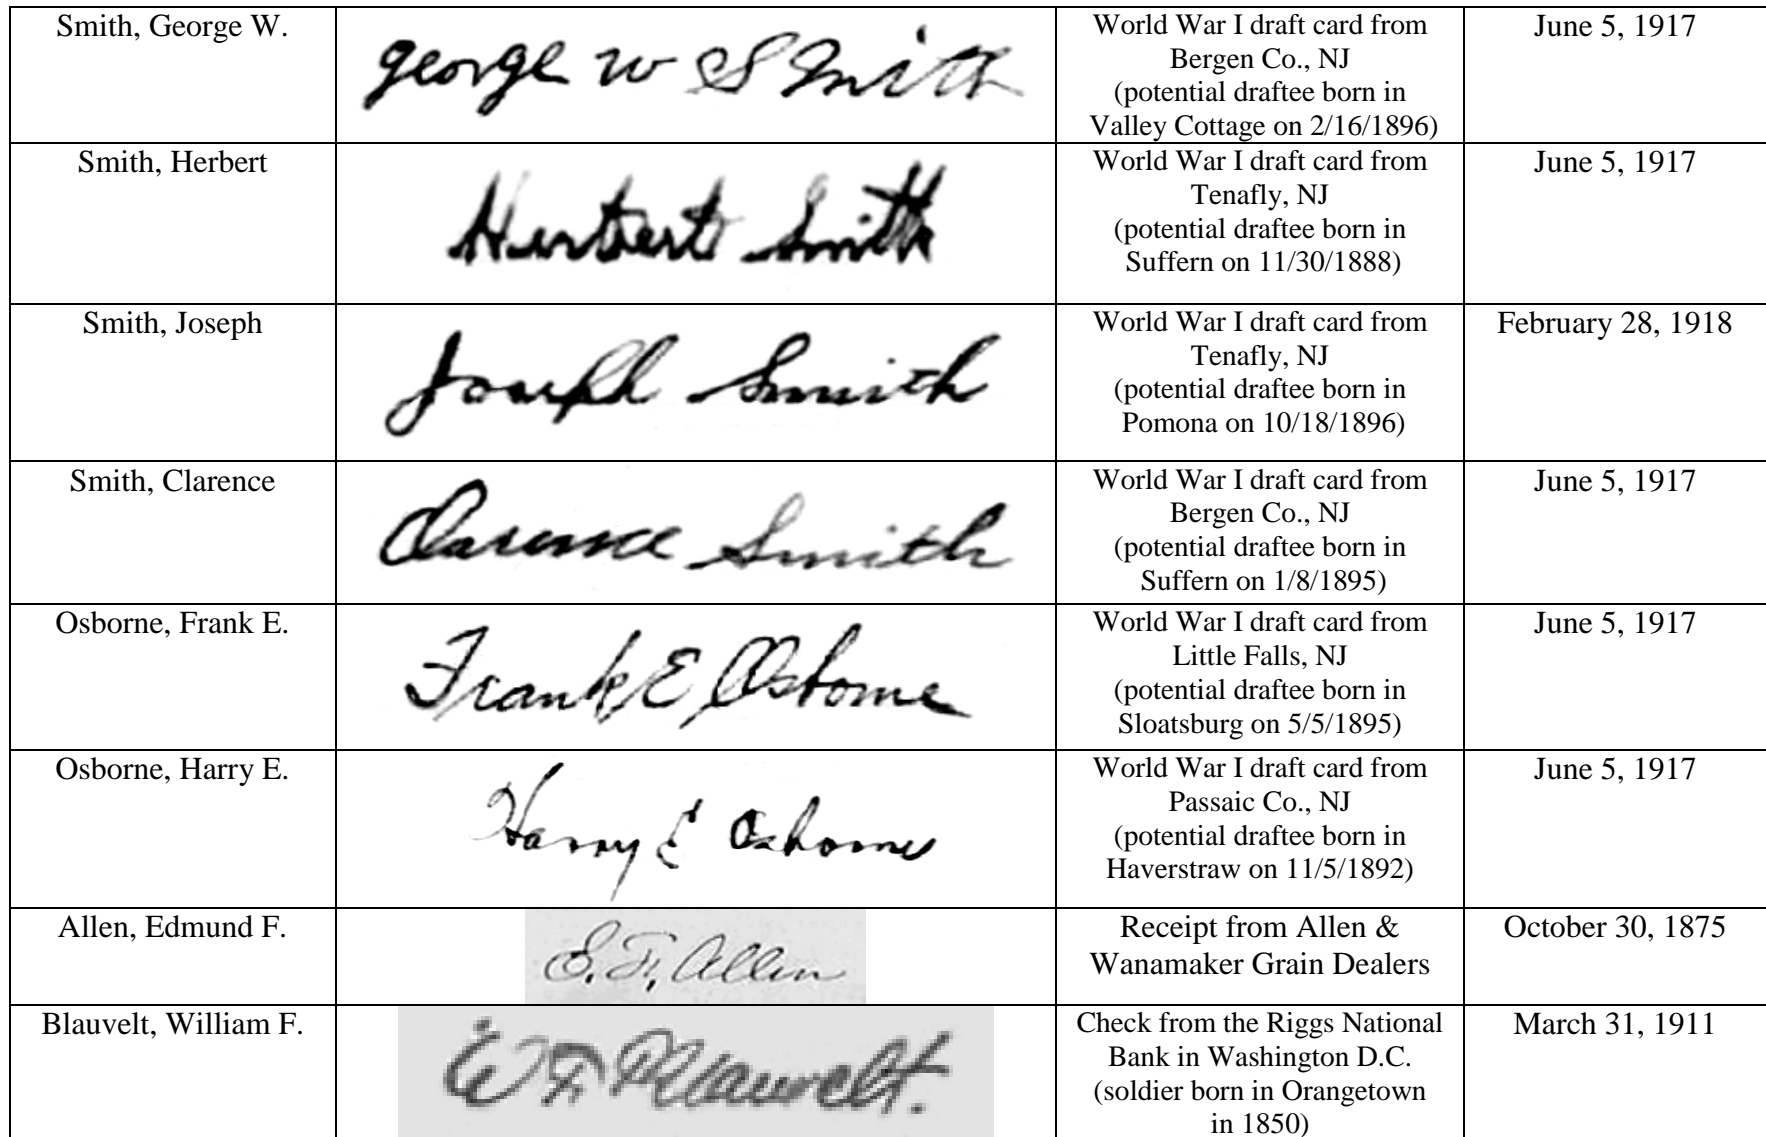 Smith, George W.
george w Smith
World War I draft card from
Bergen Co., NJ
(potential draftee born in
Valley Cottage on 2/16/1896)
June 5, 1917
Smith, Herbert
Herbert Smith
World War I draft card from
Tenafly, NJ
(potential draftee born in
Suffern on 11/30/1888)
June 5, 1917
Smith, Joseph
Joseph Smith
World War I draft card from
Tenafly, NJ
(potential draftee born in
Pomona on 10/18/1896)
February 28, 1918
Smith, Clarence
Clarence Smith
World War I draft card from
Bergen Co., NJ
(potential draftee born in
Suffern on 1/8/1895)
June 5, 1917
Osborne, Frank E.
Frank E Osborne
World War I draft card from
Little Falls, NJ
(potential draftee born in
Sloatsburg on 5/5/1895)
June 5, 1917
Osborne, Harry E.
Harry E Osborne
World War I draft card from
Passaic Co., NJ
(potential draftee born in
Haverstraw on 11/5/1892)
June 5, 1917
Allen, Edmund F.
E. F. Allen
Receipt from Allen &
Wanamaker Grain Dealers
October 30, 1875
Blauvelt, William F.
W F Blauvelt.
Check from the Riggs National
Bank in Washington D.C.
(soldier born in Orangetown
in 1850)
March 31, 1911